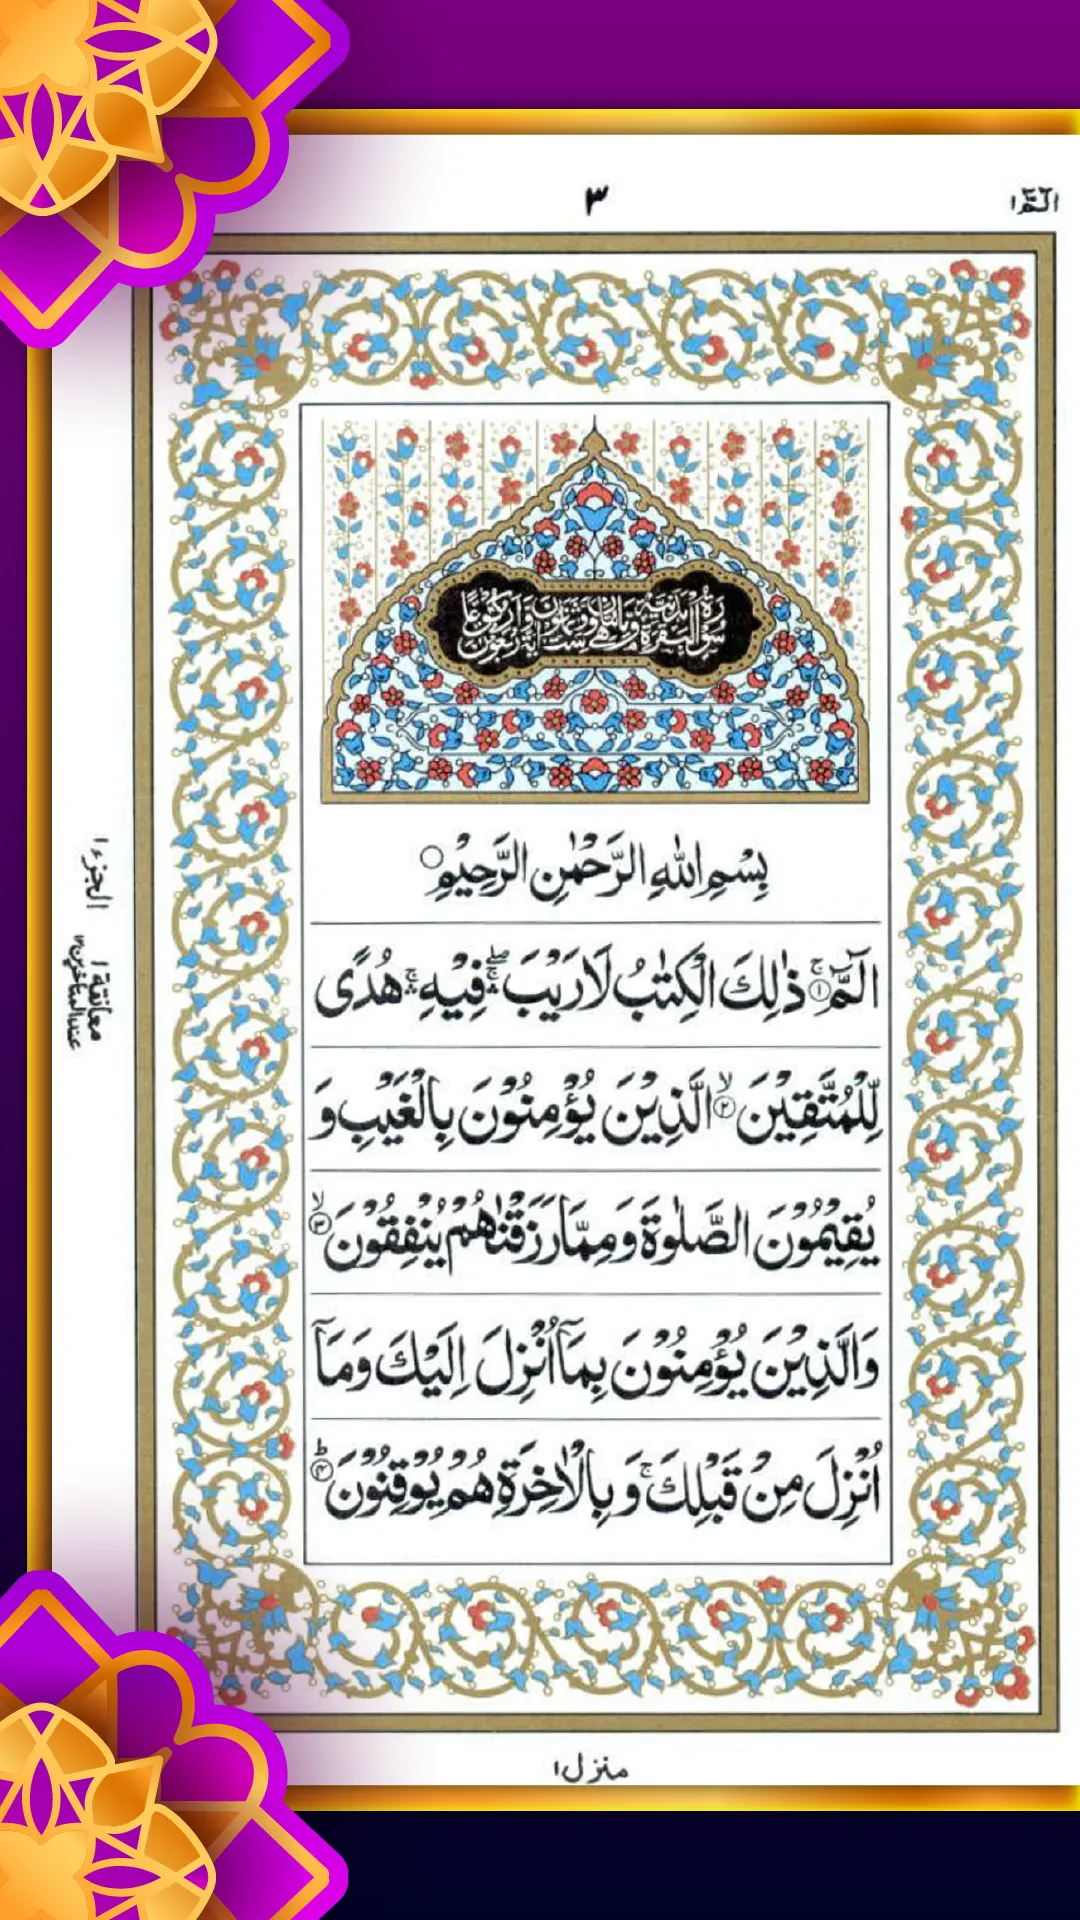 الٓمّٓ ١
٣
سُوْرَةُ الْبَقَرَةِ مَدَنِيَّةٌ وَّهِيَ مِائَتَانِ وَسِتٌّ وَّثَمَانُوْنَ اٰيَةً وَّاَرْبَعُوْنَ رُكُوْعًا
بِسْمِ اللّٰهِ الرَّحْمٰنِ الرَّحِيْمِ ○
الٓمّٓ ۚ﴿۱﴾ ذٰلِكَ الْكِتٰبُ لَا رَيْبَ ۛۖ فِيْهِ ۛۚ هُدًى
لِّلْمُتَّقِيْنَ ۙ﴿۲﴾ الَّذِيْنَ يُؤْمِنُوْنَ بِالْغَيْبِ وَ
يُقِيْمُوْنَ الصَّلٰوةَ وَمِمَّا رَزَقْنٰهُمْ يُنْفِقُوْنَ ۙ﴿۳﴾
وَالَّذِيْنَ يُؤْمِنُوْنَ بِمَآ اُنْزِلَ اِلَيْكَ وَمَآ
اُنْزِلَ مِنْ قَبْلِكَ ۚ وَ بِالْاٰخِرَةِ هُمْ يُوْقِنُوْنَ ؕ﴿۴﴾
الجزء ١
معانقة ١
عند المتاخرين ١٢
منزل ١